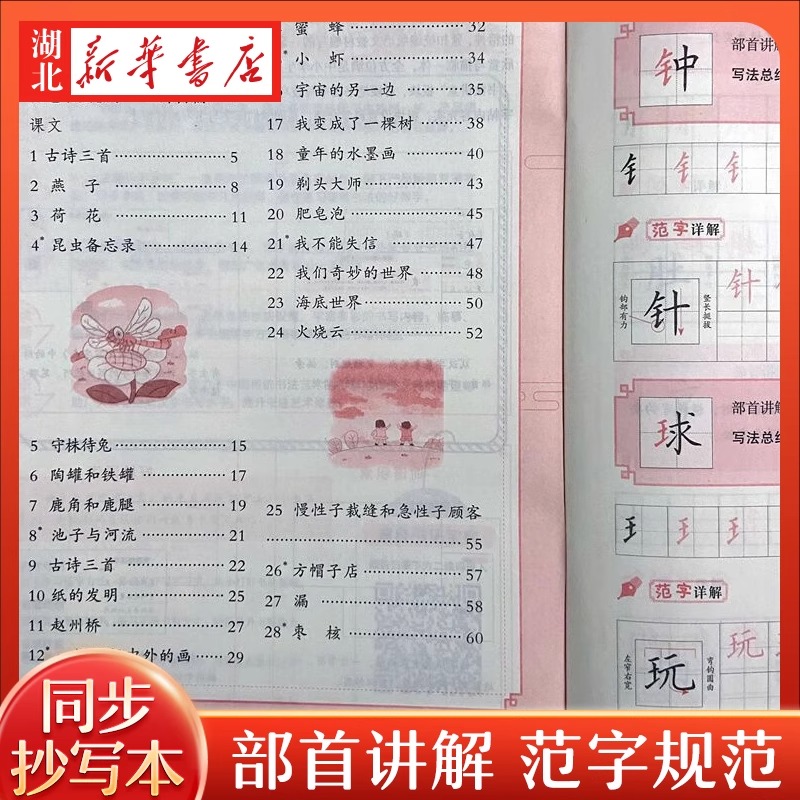 湖北
新华书店
课文
1 古诗三首 5
2 燕子 8
3 荷花 11
4* 昆虫备忘录 14
5 守株待兔 15
6 陶罐和铁罐 17
7 鹿角和鹿腿 19
8* 池子与河流 21
9 古诗三首 22
10 纸的发明 25
11 赵州桥 27
12* 外的画 29
蜜蜂 32
* 小虾 34
宇宙的另一边 35
17 我变成了一棵树 38
18 童年的水墨画 40
19 剃头大师 43
20 肥皂泡 45
21* 我不能失信 47
22 我们奇妙的世界 48
23 海底世界 50
24 火烧云 52
25 慢性子裁缝和急性子顾客
55
26* 方帽子店 57
27 漏 58
28* 枣核 60
钟
部首讲解
写法总结
钅 钅 钅
范字详解
钩部有力
针
竖长挺拔
针
球
部首讲解
写法总结
王 王 王
范字详解
左窄右宽
玩
弯钩圆曲
玩
同步
抄写本
部首讲解 范字规范